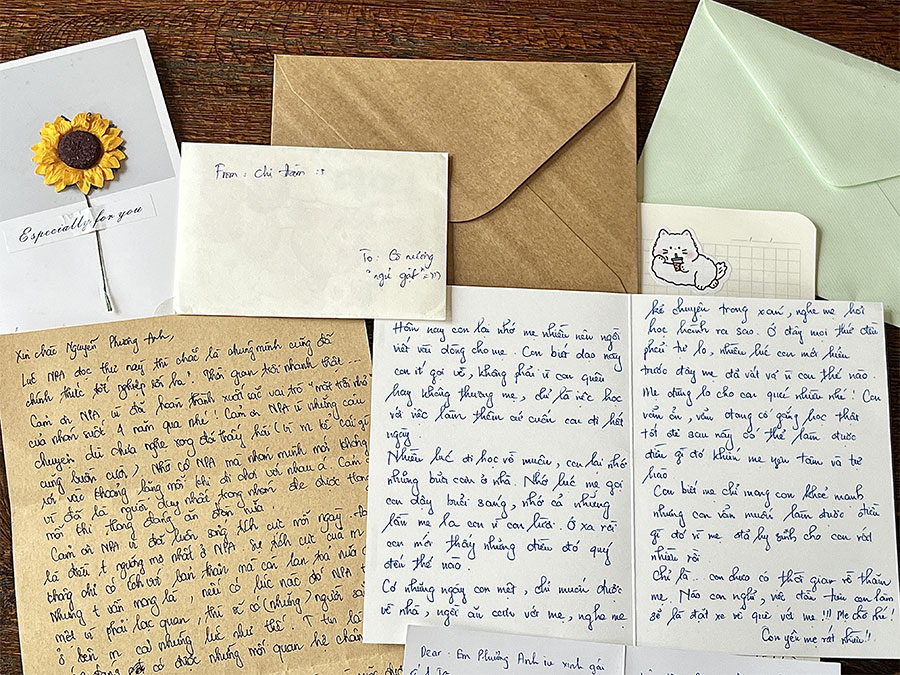 Especially for you
From : Chị Hâm :3
To : Cs nương
"ngủ gật"
Xin chào Nguyễn Phương Anh,
Lúc NPA đọc thư này thì chắc là chúng mình cũng đã
chính thức tốt nghiệp rồi ha! Thời gian trôi nhanh thật...
Cảm ơn NPA vì đã hoàn thành xuất sắc vai trò "mặt trời nhỏ"
của nhóm suốt 4 năm qua nhé! Cảm ơn NPA vì những câu
chuyện dù chưa nghe xong đã thấy hài (vì m kể cái gì
cũng buồn cười). Nhờ có NPA mà nhóm mình mới không
rơi vào khoảng lặng mỗi khi đi chơi với nhau á. Cảm ơn
vì đã là người duy nhất trong nhóm
mỗi khi đang ăn
Cảm ơn NPA vì đã luôn sống tích cực mỗi ngày.
là điều t ngưỡng mộ nhất ở NPA. Sự tích cực của m
chẳng chỉ có ích với bản thân mà còn lan toả
Nhưng t vẫn mong là, nếu có lúc nào đó NPA
mệt vì phải lạc quan, thì sẽ có (những) người
ở bên m cả những lúc như thế. T tin là
có được những mối quan hệ
Hôm nay con lại nhớ mẹ nhiều nên ngồi
viết vài dòng cho mẹ. Con biết dạo này
con ít gọi về, không phải vì con quên
hay không thương mẹ, chỉ là việc học
với việc làm thêm cứ cuốn con đi hết
ngày.
Nhiều lúc đi học về muộn, con lại nhớ
những bữa cơm ở nhà. Nhớ lúc mẹ gọi
con dậy buổi sáng, nhớ cả những
lần mẹ la con vì con lười. Ở xa rồi
con mới thấy những điều đó quý
đến thế nào.
Có những ngày con mệt, chỉ muốn được
về nhà, ngồi ăn cơm với mẹ, nghe mẹ
kể chuyện trong xóm, nghe mẹ hỏi
học hành ra sao. Ở đây mọi thứ đều
phải tự lo, nhiều lúc con mới hiểu
trước đây mẹ đã vất vả vì con thế nào.
Mẹ đừng lo cho con quá nhiều nhé! Con
vẫn ổn, vẫn đang cố gắng học thật
tốt để sau này có thể làm được
điều gì đó khiến mẹ yên tâm và tự
hào
Con biết mẹ chỉ mong con khoẻ mạnh
nhưng con vẫn muốn làm được điều
gì đó vì mẹ đã hy sinh cho con rất
nhiều rồi
Chỉ là.. con chưa có thời gian về thăm
mẹ. Nào con nghỉ, việc đầu tiên con làm
sẽ là đặt xe về quê với mẹ!!! Mẹ chờ nhé!
Con yêu mẹ rất nhiều!!
Dear : Em Phương Anh iu xinh gái